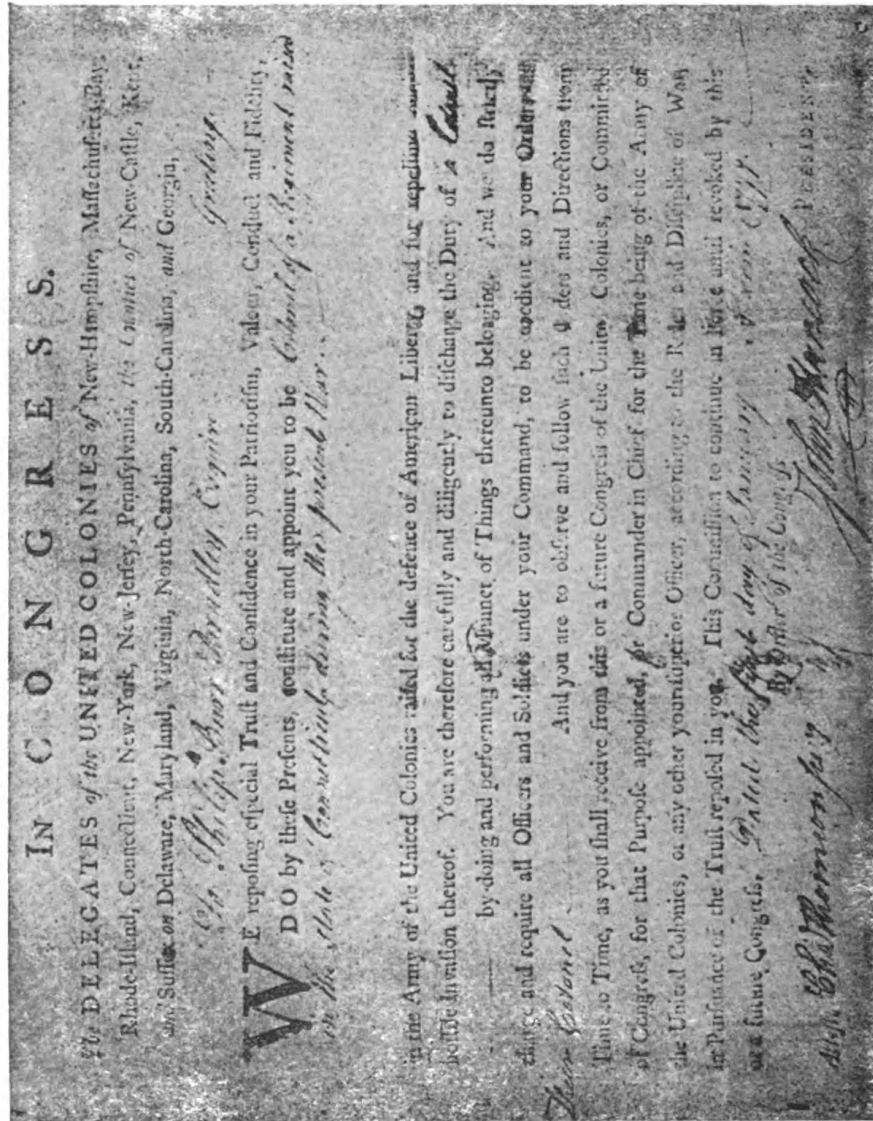 IN CONGRESS.
The DELEGATES of the UNITED COLONIES of New-Hampshire, Massachusetts-Bay,
Rhode-Island, Connecticut, New-York, New-Jersey, Pennsylvania, the Counties of New-Castle, Kent,
and Sussex on Delaware, Maryland, Virginia, North-Carolina, South-Carolina, and Georgia,
To Philip Burr Bradley, Esquire Greeting.
WE reposing especial Trust and Confidence in your Patriotism, Valour, Conduct and Fidelity,
DO by these Presents, constitute and appoint you to be Colonel of a Regiment raised
in the State of Connecticut, during the present War.
in the Army of the United Colonies raised for the defence of American Liberty, and for repelling every
hostile Invasion thereof. You are therefore carefully and diligently to discharge the Duty of a Colonel
by doing and performing all Manner of Things thereunto belonging. And we do strictly
charge and require all Officers and Soldiers under your Command, to be obedient to your Orders as
Their Colonel And you are to observe and follow such Orders and Directions from
Time to Time, as you shall receive from this or a future Congress of the United Colonies, or Committee
of Congress, for that Purpose appointed, or Commander in Chief for the Time being of the Army of
the United Colonies, or any other your superior Officer, according to the Rules and Discipline of War,
in Pursuance of the Trust reposed in you. This Commission to continue in Force until revoked by this
or a future Congress. Dated the first day of January 1777.
By Order of the Congress
Attest. Chas Thomson secy John Hancock PRESIDENT